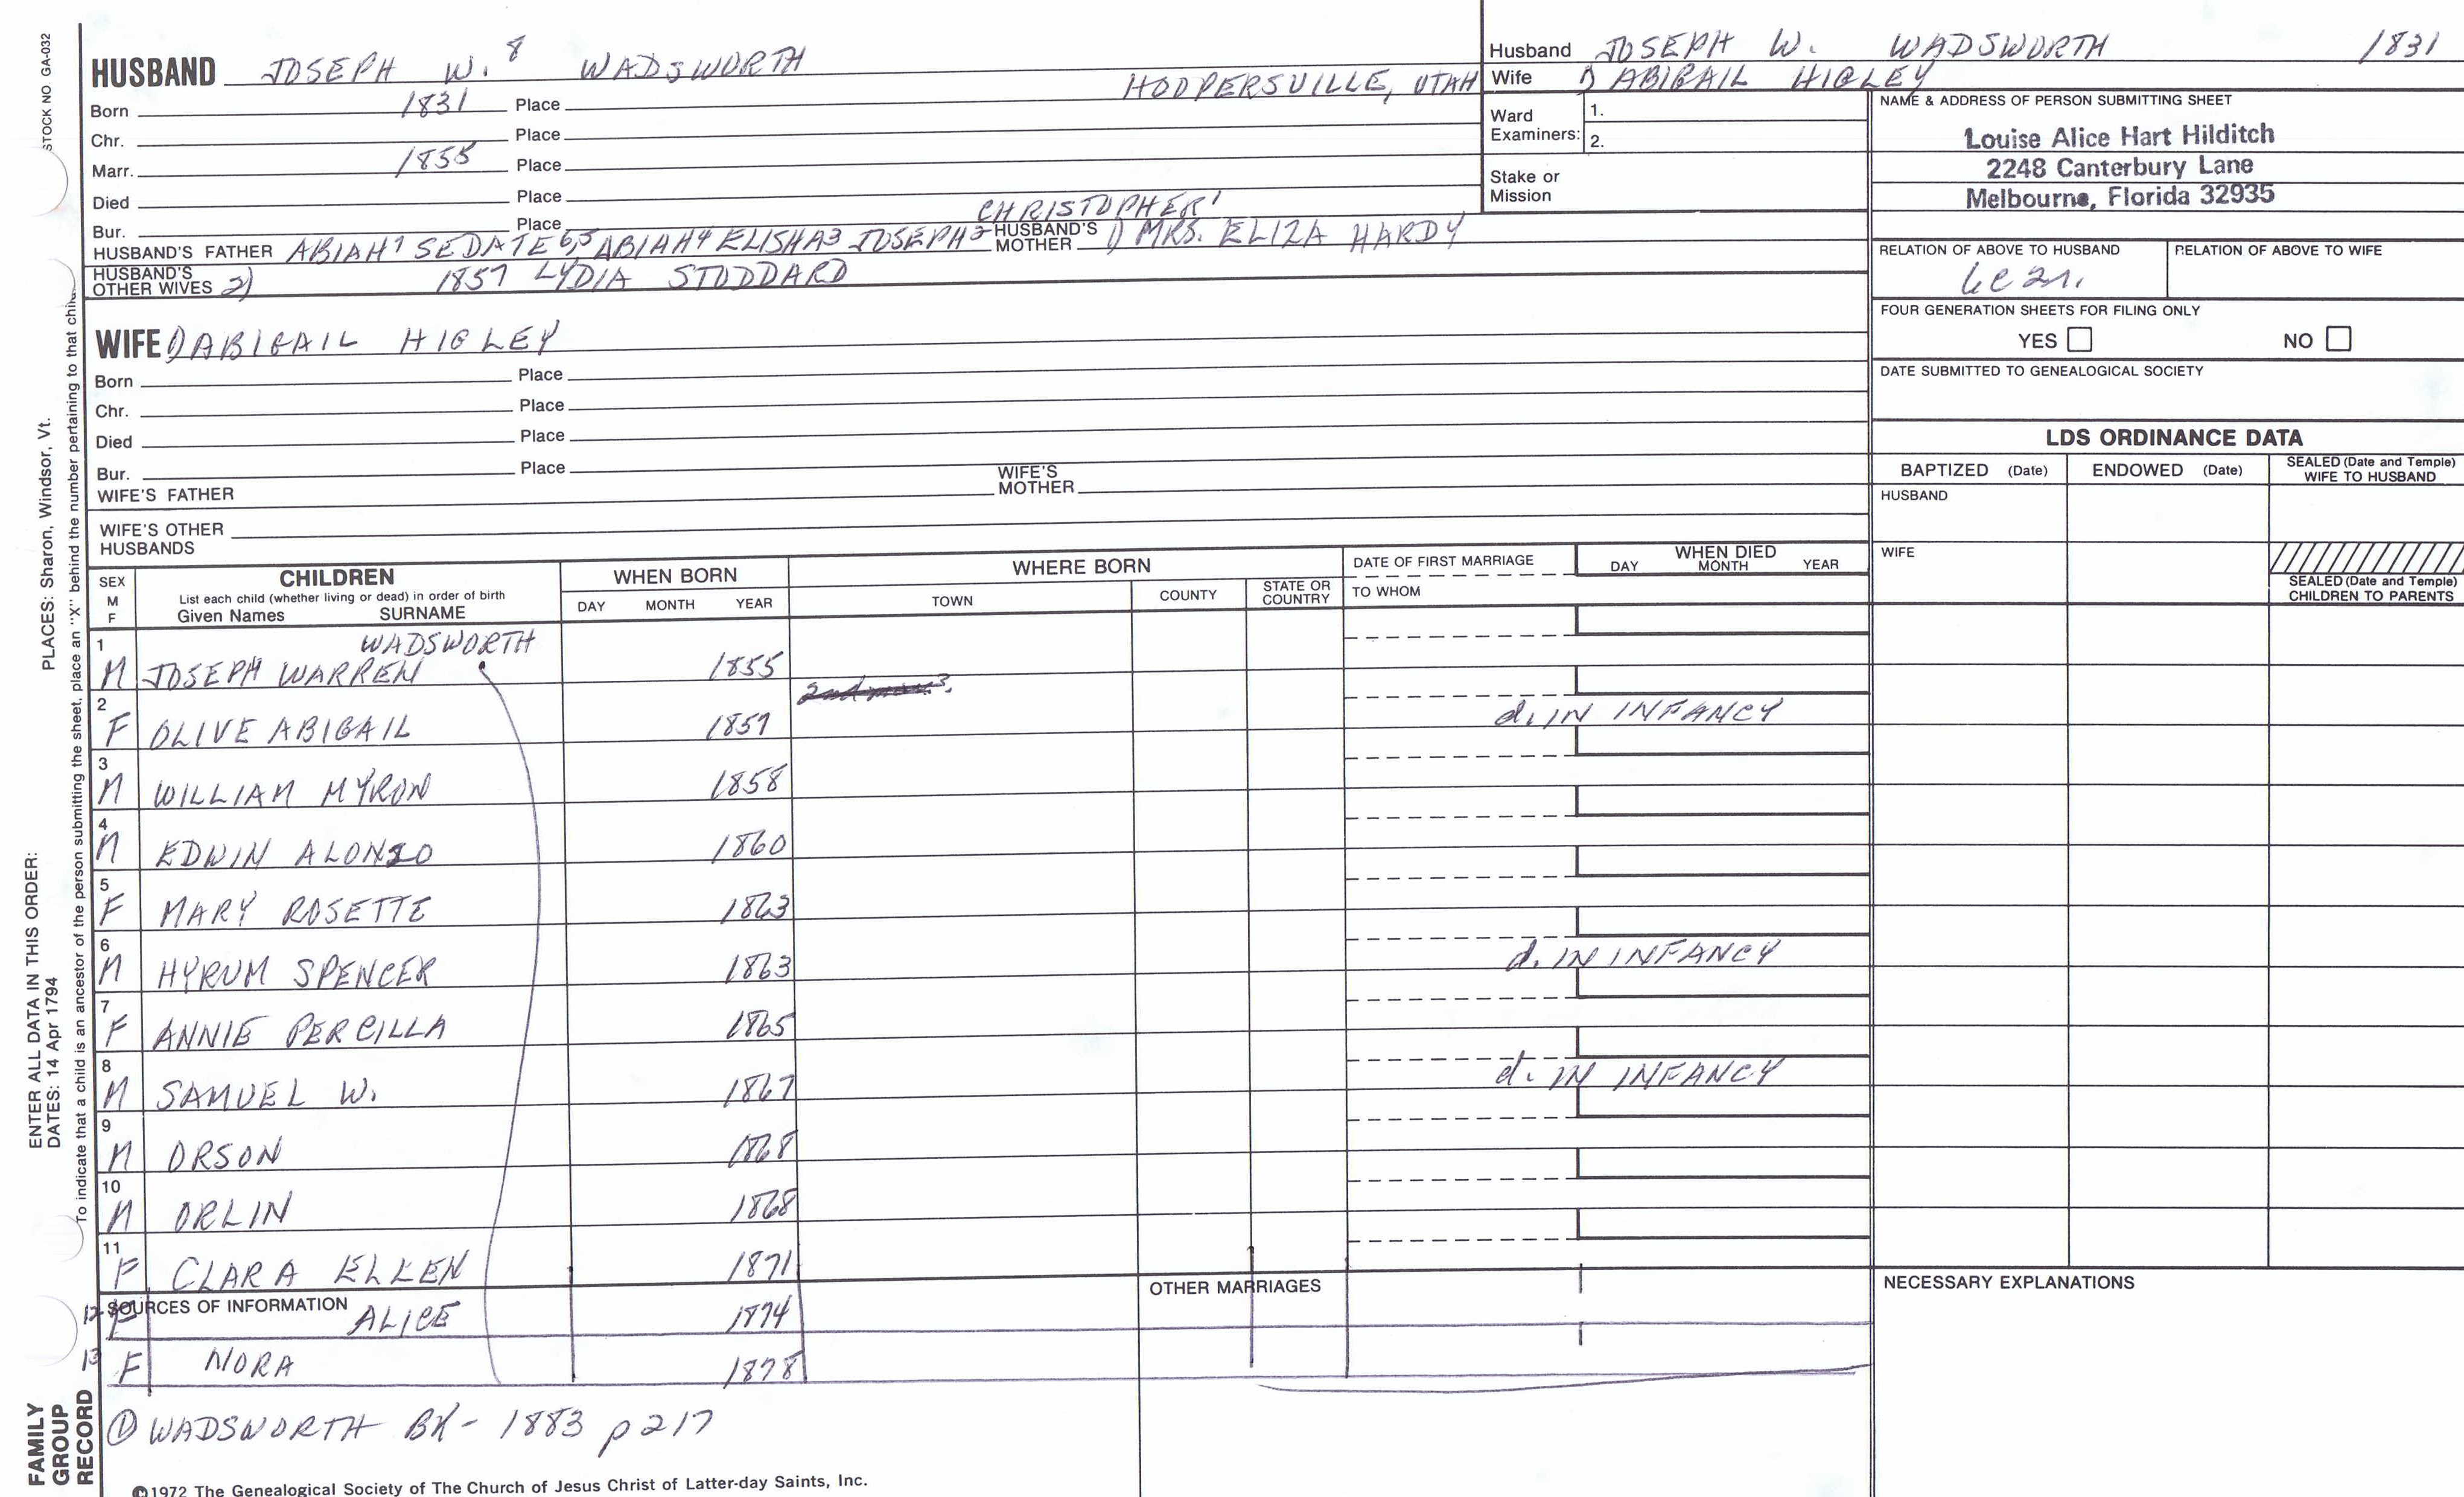 STOCK NO GA-032
HUSBAND JOSEPH W. 8 WADSWORTH
HOOPERSVILLE, UTAH
Born 1831 Place
Chr. Place
Marr. 1855 Place
Died Place
CHRISTOPHER 1
Bur. Place
HUSBAND'S FATHER ABIAH 7 SEDATE 6,5 ABIAH 4 ELISHA 3 JOSEPH 2 HUSBAND'S MOTHER 1) MRS. ELIZA HARDY
HUSBAND'S OTHER WIVES 2) 1857 LYDIA STODDARD
WIFE 1) ABIGAIL HIGLEY
Born Place
Chr. Place
Died Place
Bur. Place
WIFE'S FATHER WIFE'S MOTHER
WIFE'S OTHER HUSBANDS
Husband JOSEPH W. WADSWORTH 1831
Wife 1) ABIGAIL HIGLEY
Ward Examiners: 1.
2.
Stake or Mission
NAME & ADDRESS OF PERSON SUBMITTING SHEET
Louise Alice Hart Hilditch
2248 Canterbury Lane
Melbourne, Florida 32935
RELATION OF ABOVE TO HUSBAND RELATION OF ABOVE TO WIFE
FOUR GENERATION SHEETS FOR FILING ONLY
YES NO
DATE SUBMITTED TO GENEALOGICAL SOCIETY
LDS ORDINANCE DATA
BAPTIZED (Date) ENDOWED (Date) SEALED (Date and Temple) WIFE TO HUSBAND
HUSBAND
WIFE
SEALED (Date and Temple)
CHILDREN TO PARENTS
SEX M F CHILDREN WHEN BORN WHERE BORN DATE OF FIRST MARRIAGE WHEN DIED
List each child (whether living or dead) in order of birth
Given Names SURNAME DAY MONTH YEAR TOWN COUNTY STATE OR COUNTRY TO WHOM DAY MONTH YEAR
WADSWORTH
1 M JOSEPH WARREN 1855
2 F OLIVE ABIGAIL 1857 d. IN INFANCY
3 M WILLIAM MYRON 1858
4 M EDWIN ALONZO 1860
5 F MARY ROSETTE 1863
6 M HYRUM SPENCER 1863 d. IN INFANCY
7 F ANNIE PERCILLA 1865
8 M SAMUEL W. 1867 d. IN INFANCY
9 M ORSON 1868
10 M ORLIN 1868
11 F CLARA ELLEN 1871
SOURCES OF INFORMATION OTHER MARRIAGES NECESSARY EXPLANATIONS
12 F ALICE 1874
13 F NORA 1878
① WADSWORTH BK - 1883 p 217
©1972 The Genealogical Society of The Church of Jesus Christ of Latter-day Saints, Inc.
FAMILY
GROUP
RECORD
ENTER ALL DATA IN THIS ORDER:
DATES: 14 Apr 1794
PLACES: Sharon, Windsor, Vt.
To indicate that a child is an ancestor of the person submitting the sheet, place an "X" behind the number pertaining to that child.